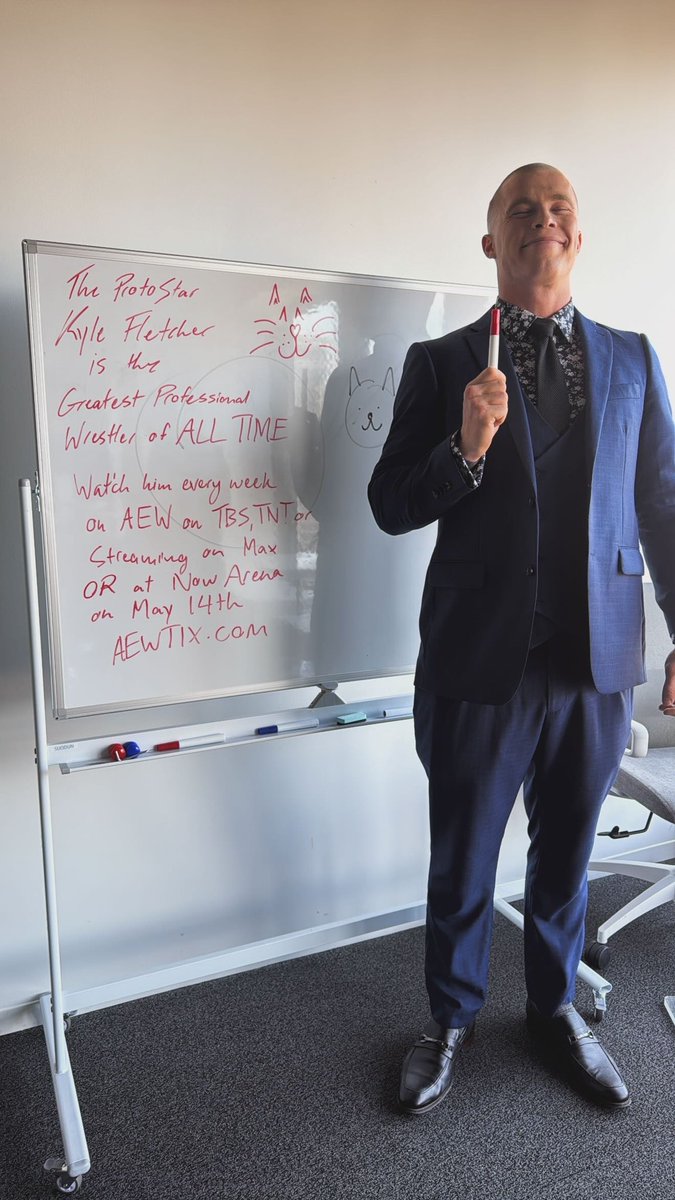 The ProtoStar
Kyle Fletcher
is the
Greatest Professional
Wrestler of ALL TIME
Watch him every week
on AEW on TBS, TNT or
Streaming on Max
OR at Now Arena
on May 14th
AEWTIX.com